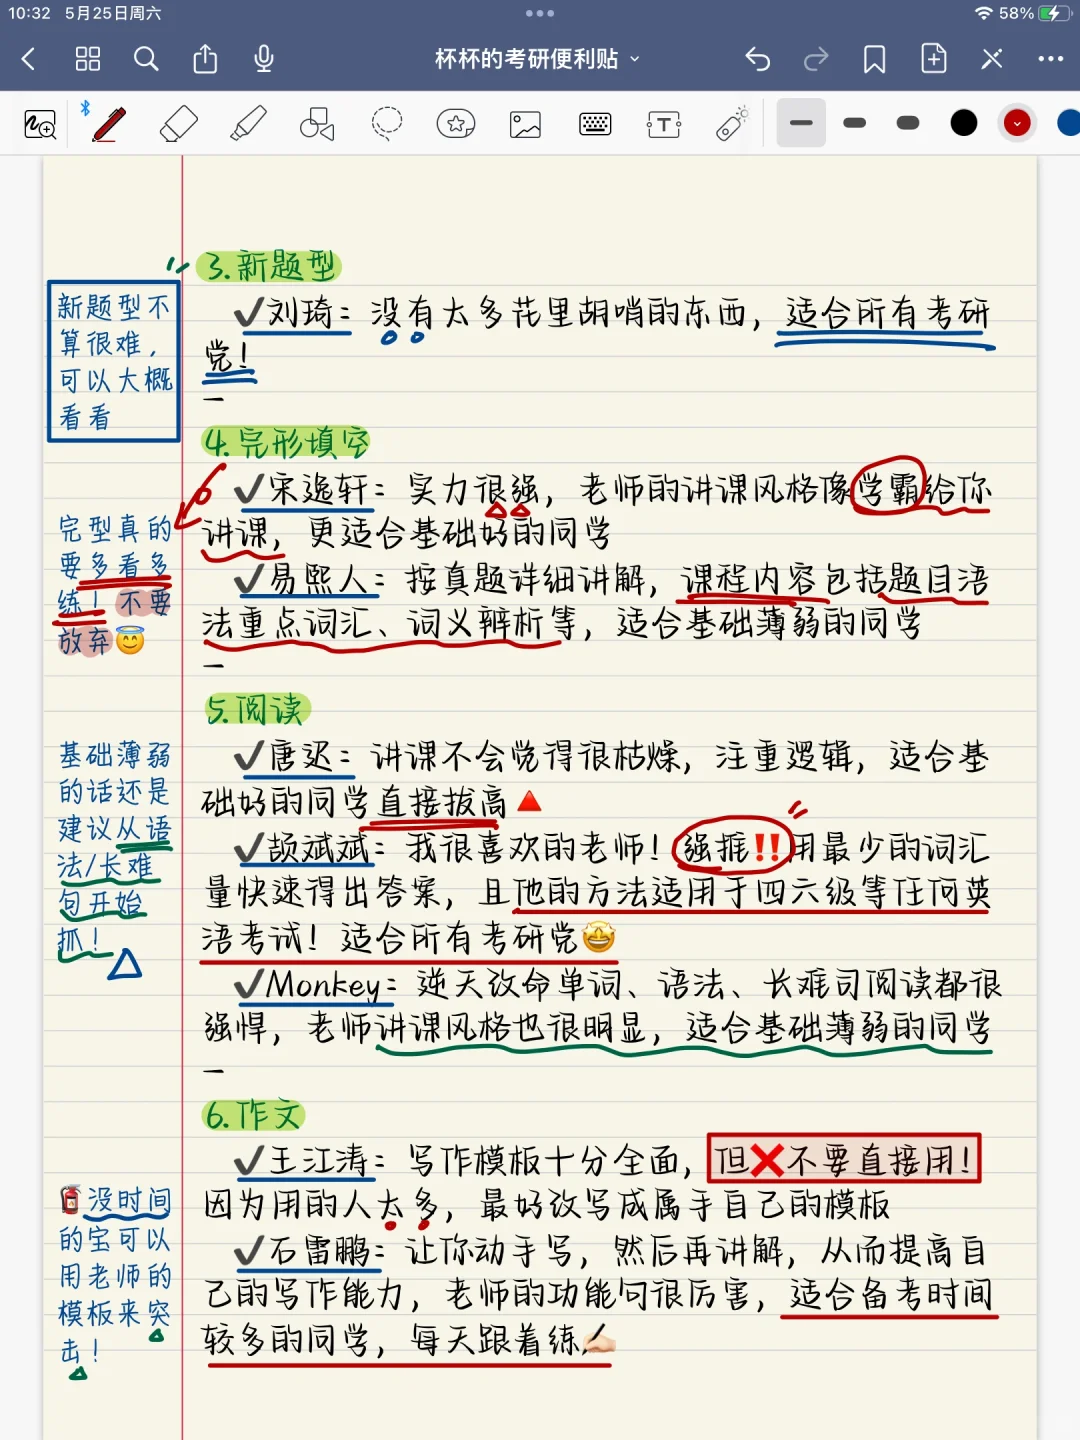 10:32 5月25日周六
58%
杯杯的考研便利贴
3.新题型
✓刘琦：没有太多花里胡哨的东西，适合所有考研
党！
新题型不
算很难，
可以大概
看看
4.完形填空
✓宋逸轩：实力很强，老师的讲课风格像学霸给你
讲课，更适合基础好的同学
✓易熙人：按真题详细讲解，课程内容包括题目语
法重点词汇、词义辨析等，适合基础薄弱的同学
完型真的
要多看多
练！不要
放弃😇
5.阅读
✓唐迟：讲课不会觉得很枯燥，注重逻辑，适合基
础好的同学直接拔高🔺
✓颉斌斌：我很喜欢的老师！强推‼️用最少的词汇
量快速得出答案，且他的方法适用于四六级等任何英
语考试！适合所有考研党🤩
✓Monkey：逆天改命单词、语法、长难句阅读都很
强悍，老师讲课风格也很明显，适合基础薄弱的同学
基础薄弱
的话还是
建议从语
法/长难
句开始
抓！
6.作文
✓王江涛：写作模板十分全面，但❌不要直接用！
因为用的人太多，最好改写成属于自己的模板
✓石雷鹏：让你动手写，然后再讲解，从而提高自
己的写作能力，老师的功能句很厉害，适合备考时间
较多的同学，每天跟着练✍🏻
🧯没时间
的宝可以
用老师的
模板来突
击！